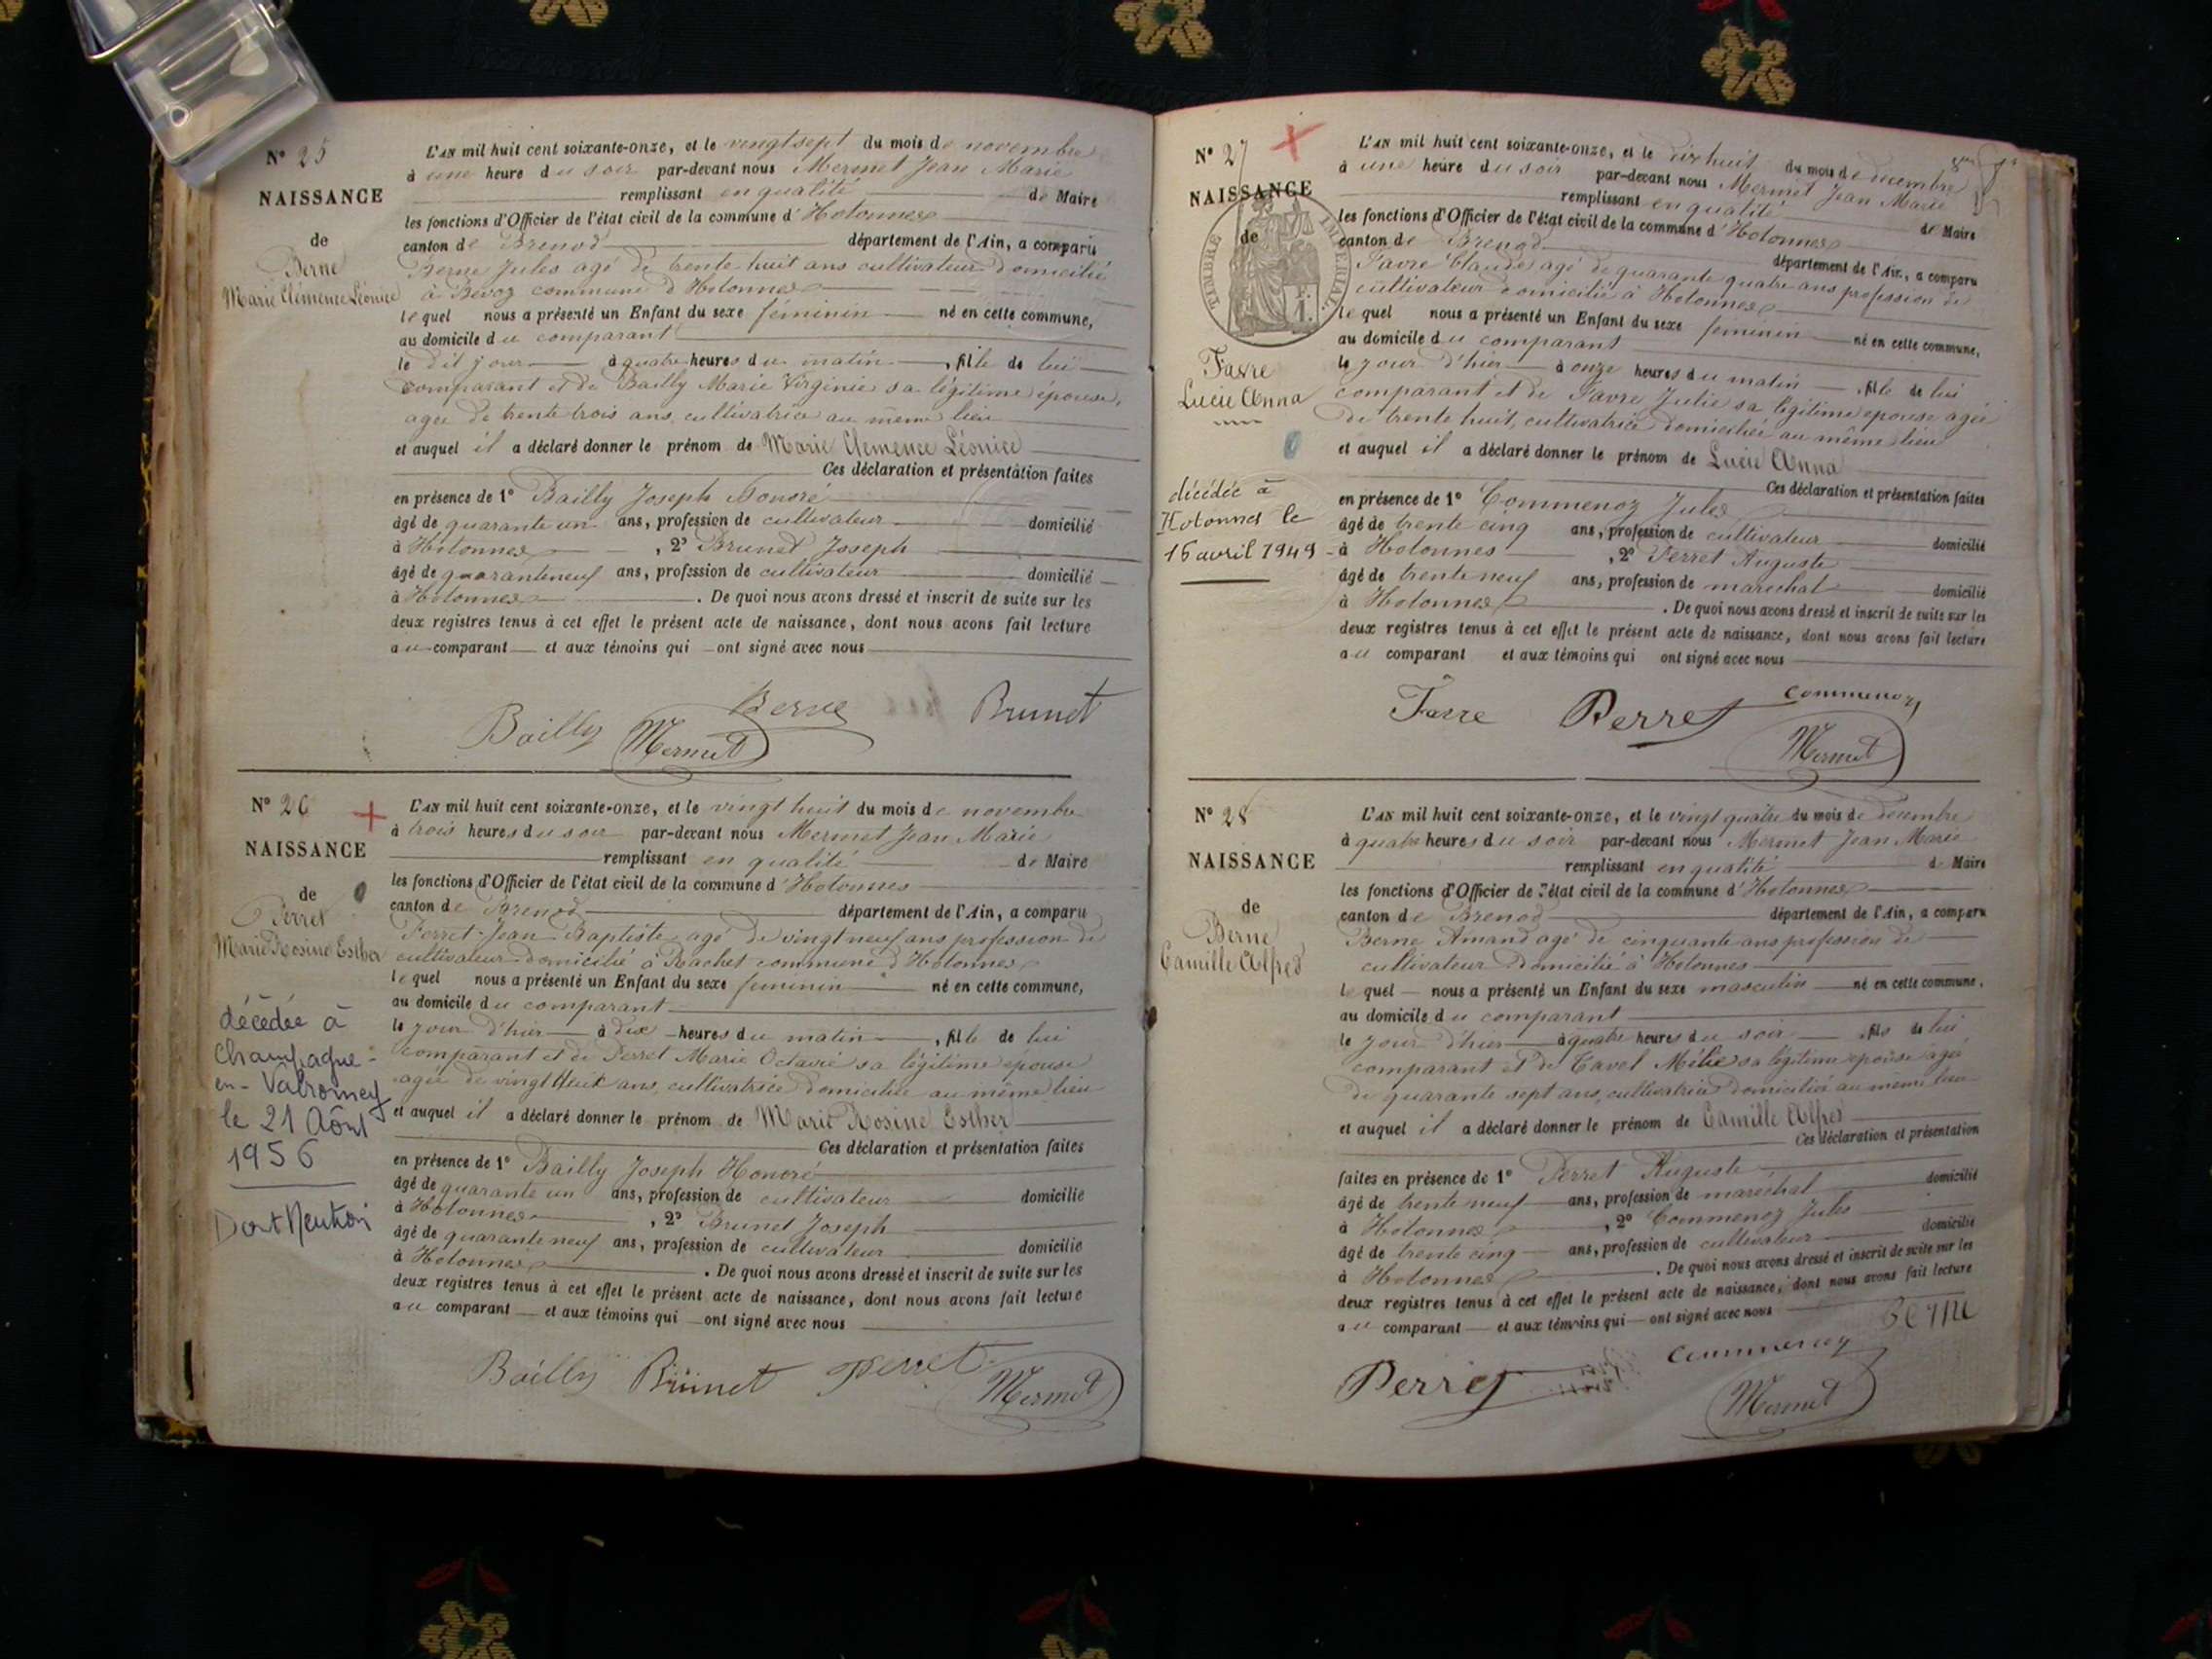 N° 25
NAISSANCE
de
Berne
Marie Clémence Léonice
L'AN mil huit cent soixante-onze, et le vingt sept du mois de novembre
à une heure du soir par-devant nous Mermet Jean Marie
remplissant en qualité de Maire
les fonctions d'Officier de l'état civil de la commune d'Hotonnes
canton de Brenod département de l'Ain, a comparu
Berne Jules agé de trente-huit ans cultivateur domicilié
à Bevoz commune d'Hotonnes
lequel nous a présenté un Enfant du sexe féminin né en cette commune,
au domicile du comparant
le dit jour à quatre heures du matin, fille de lui
comparant et de Bailly Marie Virginie sa légitime épouse,
agée de trente trois ans, cultivatrice au même lieu
et auquel il a déclaré donner le prénom de Marie Clémence Léonice
Ces déclaration et présentation faites
en présence de 1° Bailly Joseph Honoré
âgé de quarante un ans, profession de cultivateur domicilié
à Hotonnes, 2° Brunet Joseph
âgé de quaranteneuf ans, profession de cultivateur domicilié
à Hotonnes. De quoi nous avons dressé et inscrit de suite sur les
deux registres tenus à cet effet le présent acte de naissance, dont nous avons fait lecture
au comparant et aux témoins qui ont signé avec nous
Berne Brunet
Bailly Mermet
N° 26
NAISSANCE
de
Perret
Marie Rosine Esther
décédée à
Champagne-
en-Valromey
le 21 Août
1956
L'AN mil huit cent soixante-onze, et le vingt huit du mois de novembre
à trois heures du soir par-devant nous Mermet Jean Marie
remplissant en qualité de Maire
les fonctions d'Officier de l'état civil de la commune d'Hotonnes
canton de Brenod département de l'Ain, a comparu
Perret Jean Baptiste agé de vingt neuf ans profession de
cultivateur domicilié à Rachet commune d'Hotonnes
lequel nous a présenté un Enfant du sexe féminin né en cette commune,
au domicile du comparant
le jour d'hier à dix heures du matin, fille de lui
comparant et de Perret Marie Octavie sa légitime épouse
agée de vingt huit ans, cultivatrice domiciliée au même lieu
et auquel il a déclaré donner le prénom de Marie Rosine Esther
Ces déclaration et présentation faites
en présence de 1° Bailly Joseph Honoré
âgé de quarante un ans, profession de cultivateur domicilié
à Hotonnes, 2° Brunet Joseph
âgé de quaranteneuf ans, profession de cultivateur domicilié
à Hotonnes. De quoi nous avons dressé et inscrit de suite sur les
deux registres tenus à cet effet le présent acte de naissance, dont nous avons fait lecture
au comparant et aux témoins qui ont signé avec nous
Bailly Brunet Perret
Mermet
N° 27
NAISSANCE
de
TIMBRE IMPERIAL.
1 F.
Favre
Lucie Anna
décédée à
Hotonnes le
16 avril 1949
L'AN mil huit cent soixante-onze, et le dix huit du mois de decembre
à une heure du soir par-devant nous Mermet Jean Marie
remplissant en qualité de Maire
les fonctions d'Officier de l'état civil de la commune d'Hotonnes
canton de Brenod département de l'Ain, a comparu
Favre Claude agé de quarante quatre ans profession de
cultivateur domicilié à Hotonnes
lequel nous a présenté un Enfant du sexe feminin né en cette commune,
au domicile du comparant
le jour d'hier à onze heures du matin, fille de lui
comparant et de Favre Julie sa légitime epouse agée
de trente huit, cultivatrice domiciliée au même lieu
et auquel il a déclaré donner le prénom de Lucie Anna
Ces déclaration et présentation faites
en présence de 1° Commenoz Jules
âgé de trente cinq ans, profession de cultivateur domicilié
à Hotonnes, 2° Perret Auguste
âgé de trenteneuf ans, profession de marechal domicilié
à Hotonnes. De quoi nous avons dressé et inscrit de suite sur les
deux registres tenus à cet effet le présent acte de naissance, dont nous avons fait lecture
au comparant et aux témoins qui ont signé avec nous
Favre Perret Commenoz
Mermet
N° 28
NAISSANCE
de
Berne
Camille Alfred
L'AN mil huit cent soixante-onze, et le vingt quatre du mois de decembre
à quatre heures du soir par-devant nous Mermet Jean Marie
remplissant en qualité de Maire
les fonctions d'Officier de l'état civil de la commune d'Hotonnes
canton de Brenod département de l'Ain, a comparu
Berne Amand agé de cinquante ans profession de
cultivateur domicilié à Hotonnes
lequel nous a présenté un Enfant du sexe masculin né en cette commune,
au domicile du comparant
le jour d'hier à quatre heures du soir, fils de lui
comparant et de Cavol Mélie sa légitime epouse agée
de quarante sept ans, cultivatrice domiciliée au même lieu
et auquel il a déclaré donner le prénom de Camille Alfred
Ces déclaration et présentation
faites en présence de 1° Perret Auguste
âgé de trente neuf ans, profession de maréchal domicilié
à Hotonnes, 2° Commenoz Jules
âgé de trente cinq ans, profession de cultivateur domicilié
à Hotonnes. De quoi nous avons dressé et inscrit de suite sur les
deux registres tenus à cet effet le présent acte de naissance, dont nous avons fait lecture
au comparant et aux témoins qui ont signé avec nous
Berne
Perret Commenoz
Mermet